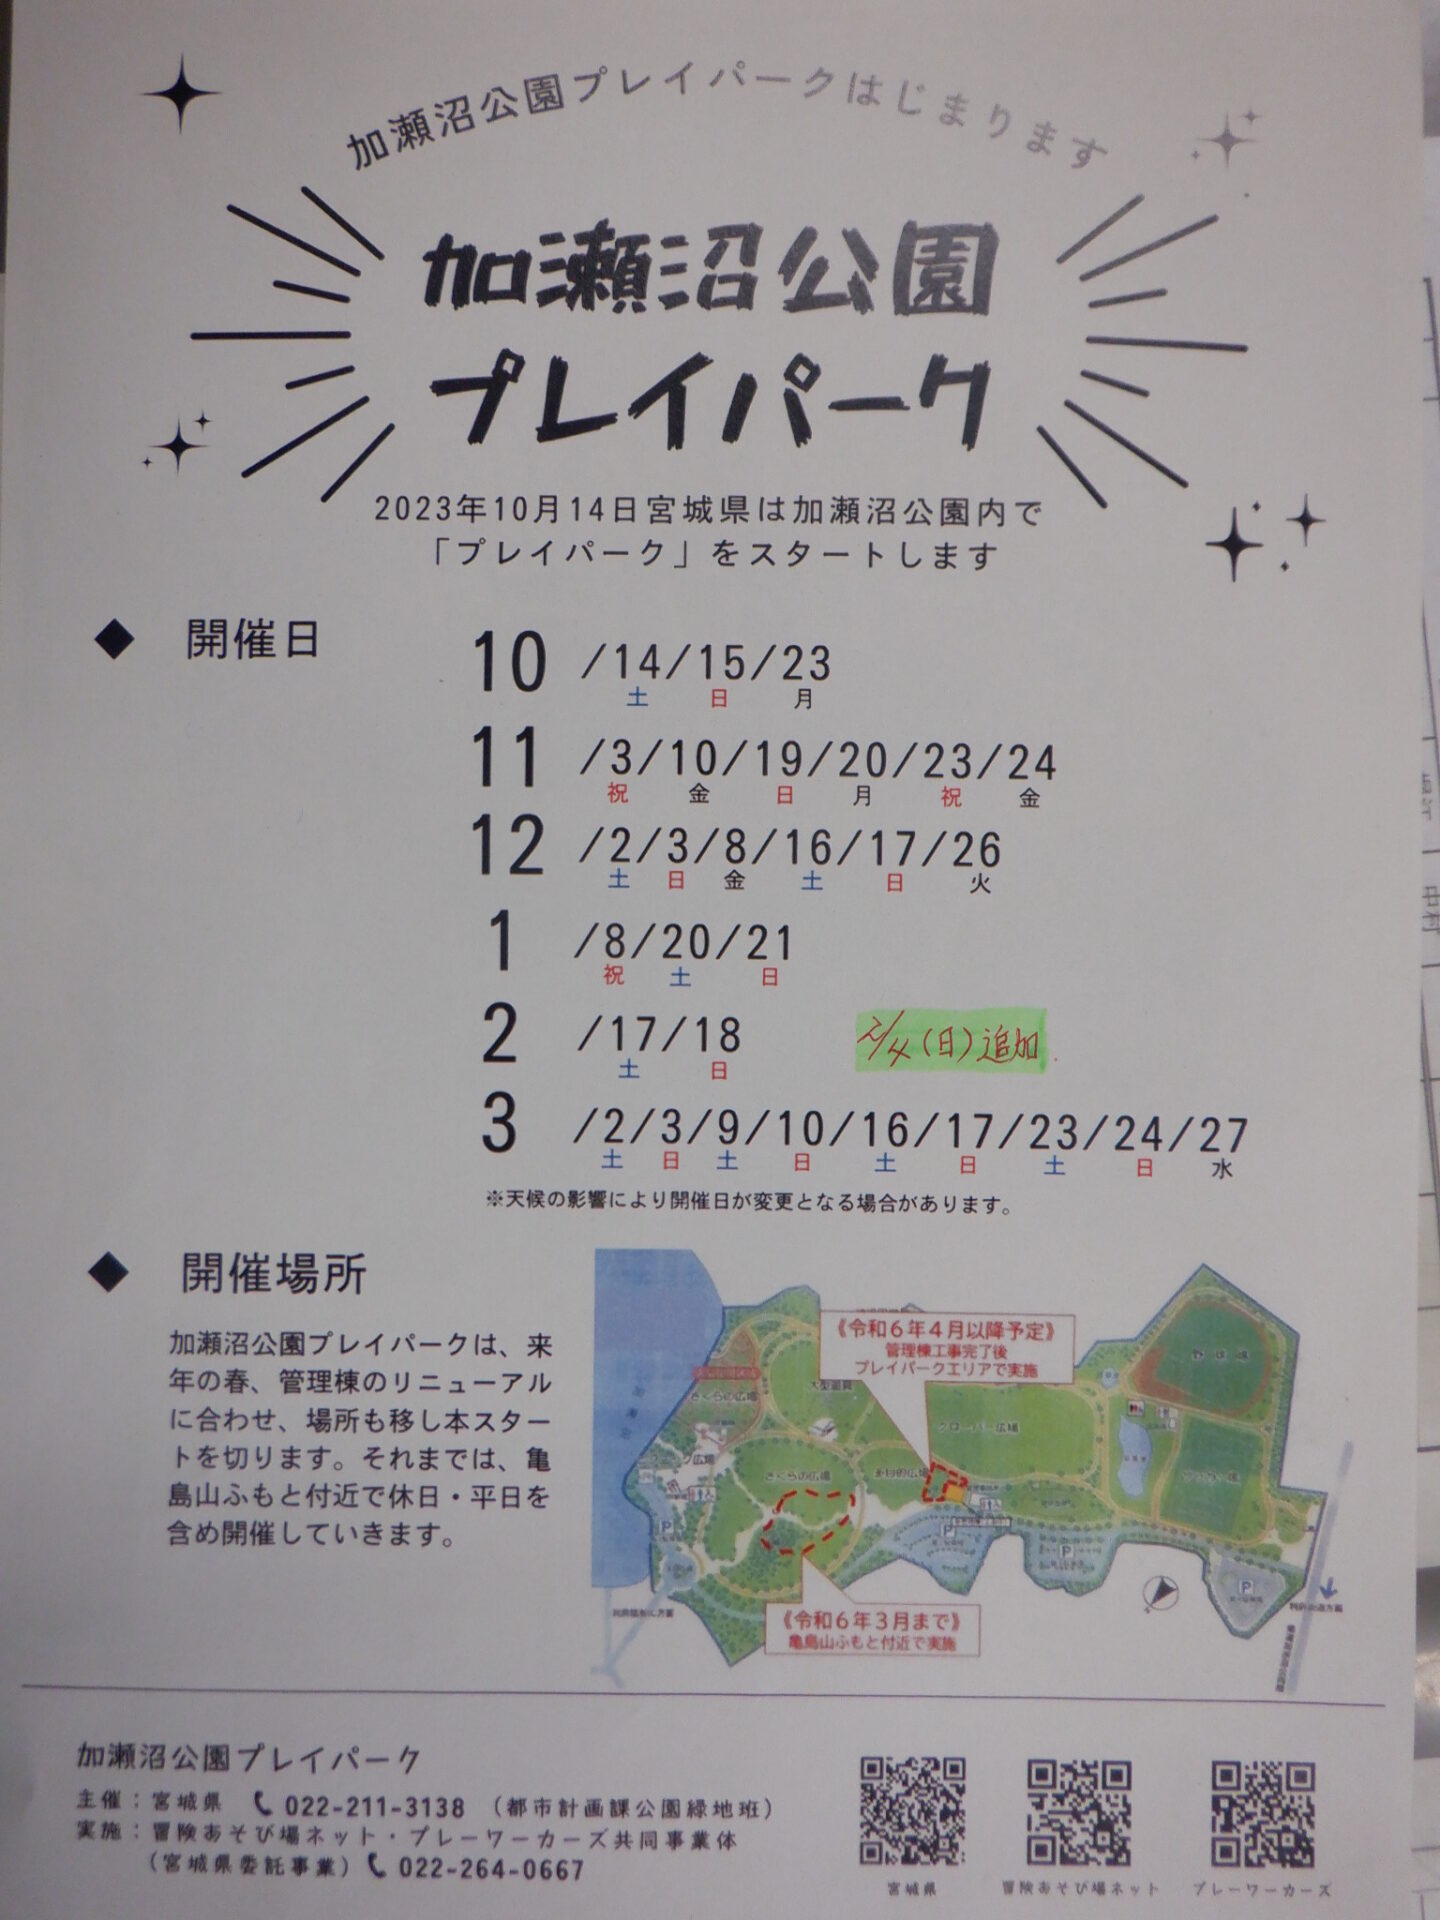 加瀬沼公園プレイパークはじまります
加瀬沼公園
プレイパーク
2023年10月14日宮城県は加瀬沼公園内で
「プレイパーク」をスタートします
◆ 開催日
10 /14/15/23
土 日 月
11 /3/10/19/20/23/24
祝 金 日 月 祝 金
12 /2/3/8/16/17/26
土 日 金 土 日 火
1 /8/20/21
祝 土 日
2 /17/18 2/4(日)追加
土 日
3 /2/3/9/10/16/17/23/24/27
土 日 土 日 土 日 土 日 水
※天候の影響により開催日が変更となる場合があります。
◆ 開催場所
加瀬沼公園プレイパークは、来
年の春、管理棟のリニューアル
に合わせ、場所も移し本スター
トを切ります。それまでは、亀
島山ふもと付近で休日・平日を
含め開催していきます。
《令和6年4月以降予定》
管理棟工事完了後
プレイパークエリアで実施
野球場
大型遊具
さくらの広場
クローバー広場
さくらの広場
多目的広場
P
P
P
P
《令和6年3月まで》
亀島山ふもと付近で実施
加瀬沼公園プレイパーク
主催：宮城県 022-211-3138 （都市計画課公園緑地班）
実施：冒険あそび場ネット・プレーワーカーズ共同事業体
（宮城県委託事業） 022-264-0667
宮城県
冒険あそび場ネット
プレーワーカーズ